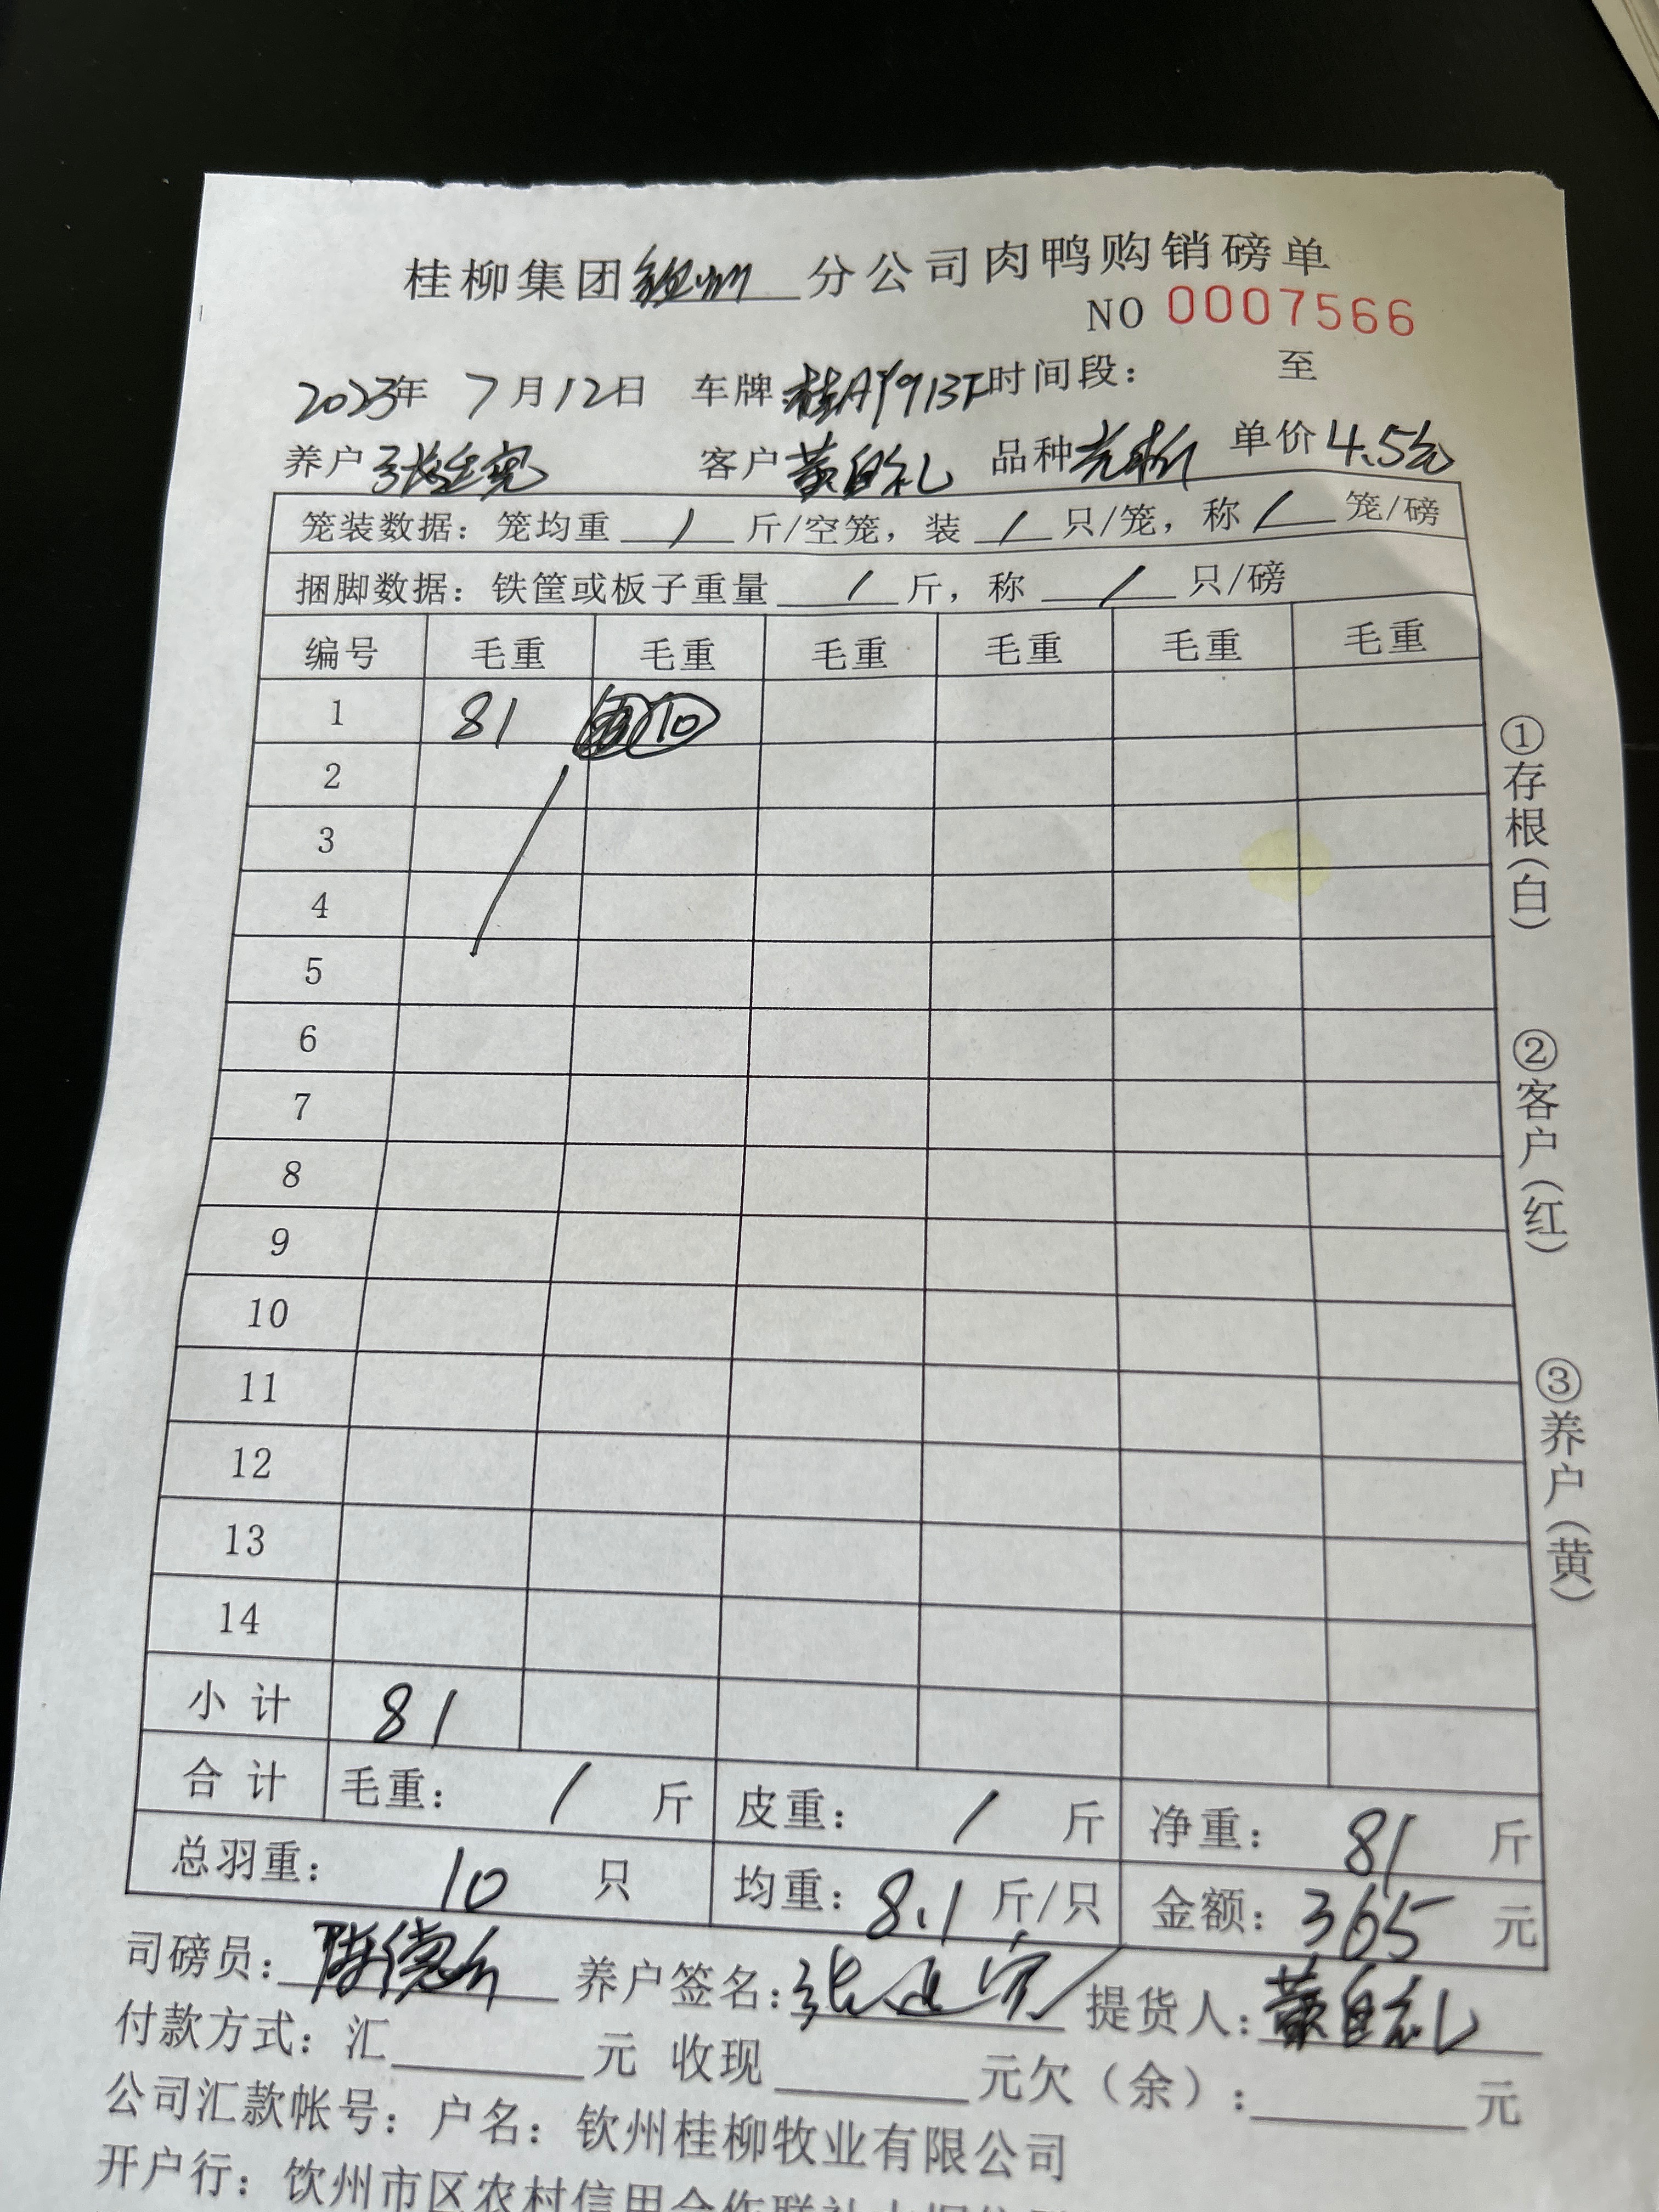 桂柳集团钦州分公司肉鸭购销磅单
NO 0007566
2023年 7月12日 车牌: 时间段: 至
养户 客户 黄自礼 品种 单价 4.5元
笼装数据: 笼均重 / 斤/空笼, 装 / 只/笼, 称 / 笼/磅
捆脚数据: 铁筐或板子重量 / 斤, 称 / 只/磅
编号 毛重 毛重 毛重 毛重 毛重 毛重
1 81 10
2
3
4
5
6
7
8
9
10
11
12
13
14
小计 81
合计 毛重: / 斤 皮重: / 斤 净重: 81 斤
总羽重: 10 只 均重: 8.1 斤/只 金额: 365 元
司磅员: 养户签名: 提货人: 黄自礼
付款方式: 汇 元 收现 元欠(余): 元
公司汇款帐号: 户名: 钦州桂柳牧业有限公司
开户行: 钦州市区农村信用合作联社
①存根(白)
②客户(红)
③养户(黄)